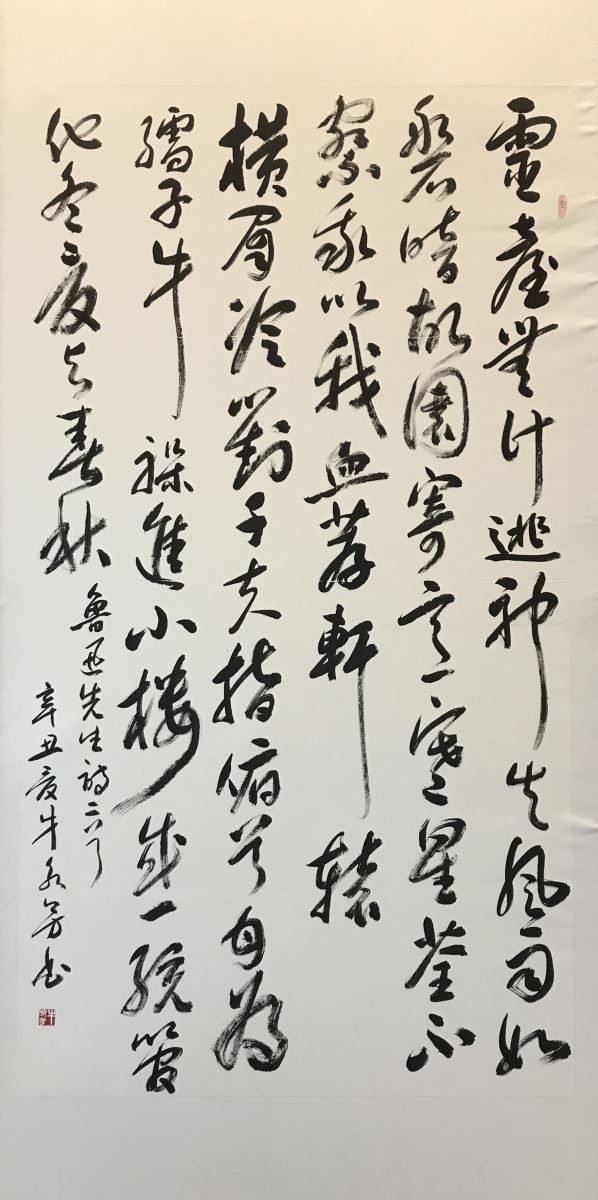 靈臺無計逃神矢風雨如
磐暗故園寄意寒星荃不
察我以我血荐軒轅
横眉冷對千夫指俯首甘為
孺子牛躲進小樓成一統管
他冬夏与春秋
魯迅先生詩二首
辛丑夏牛永芳书